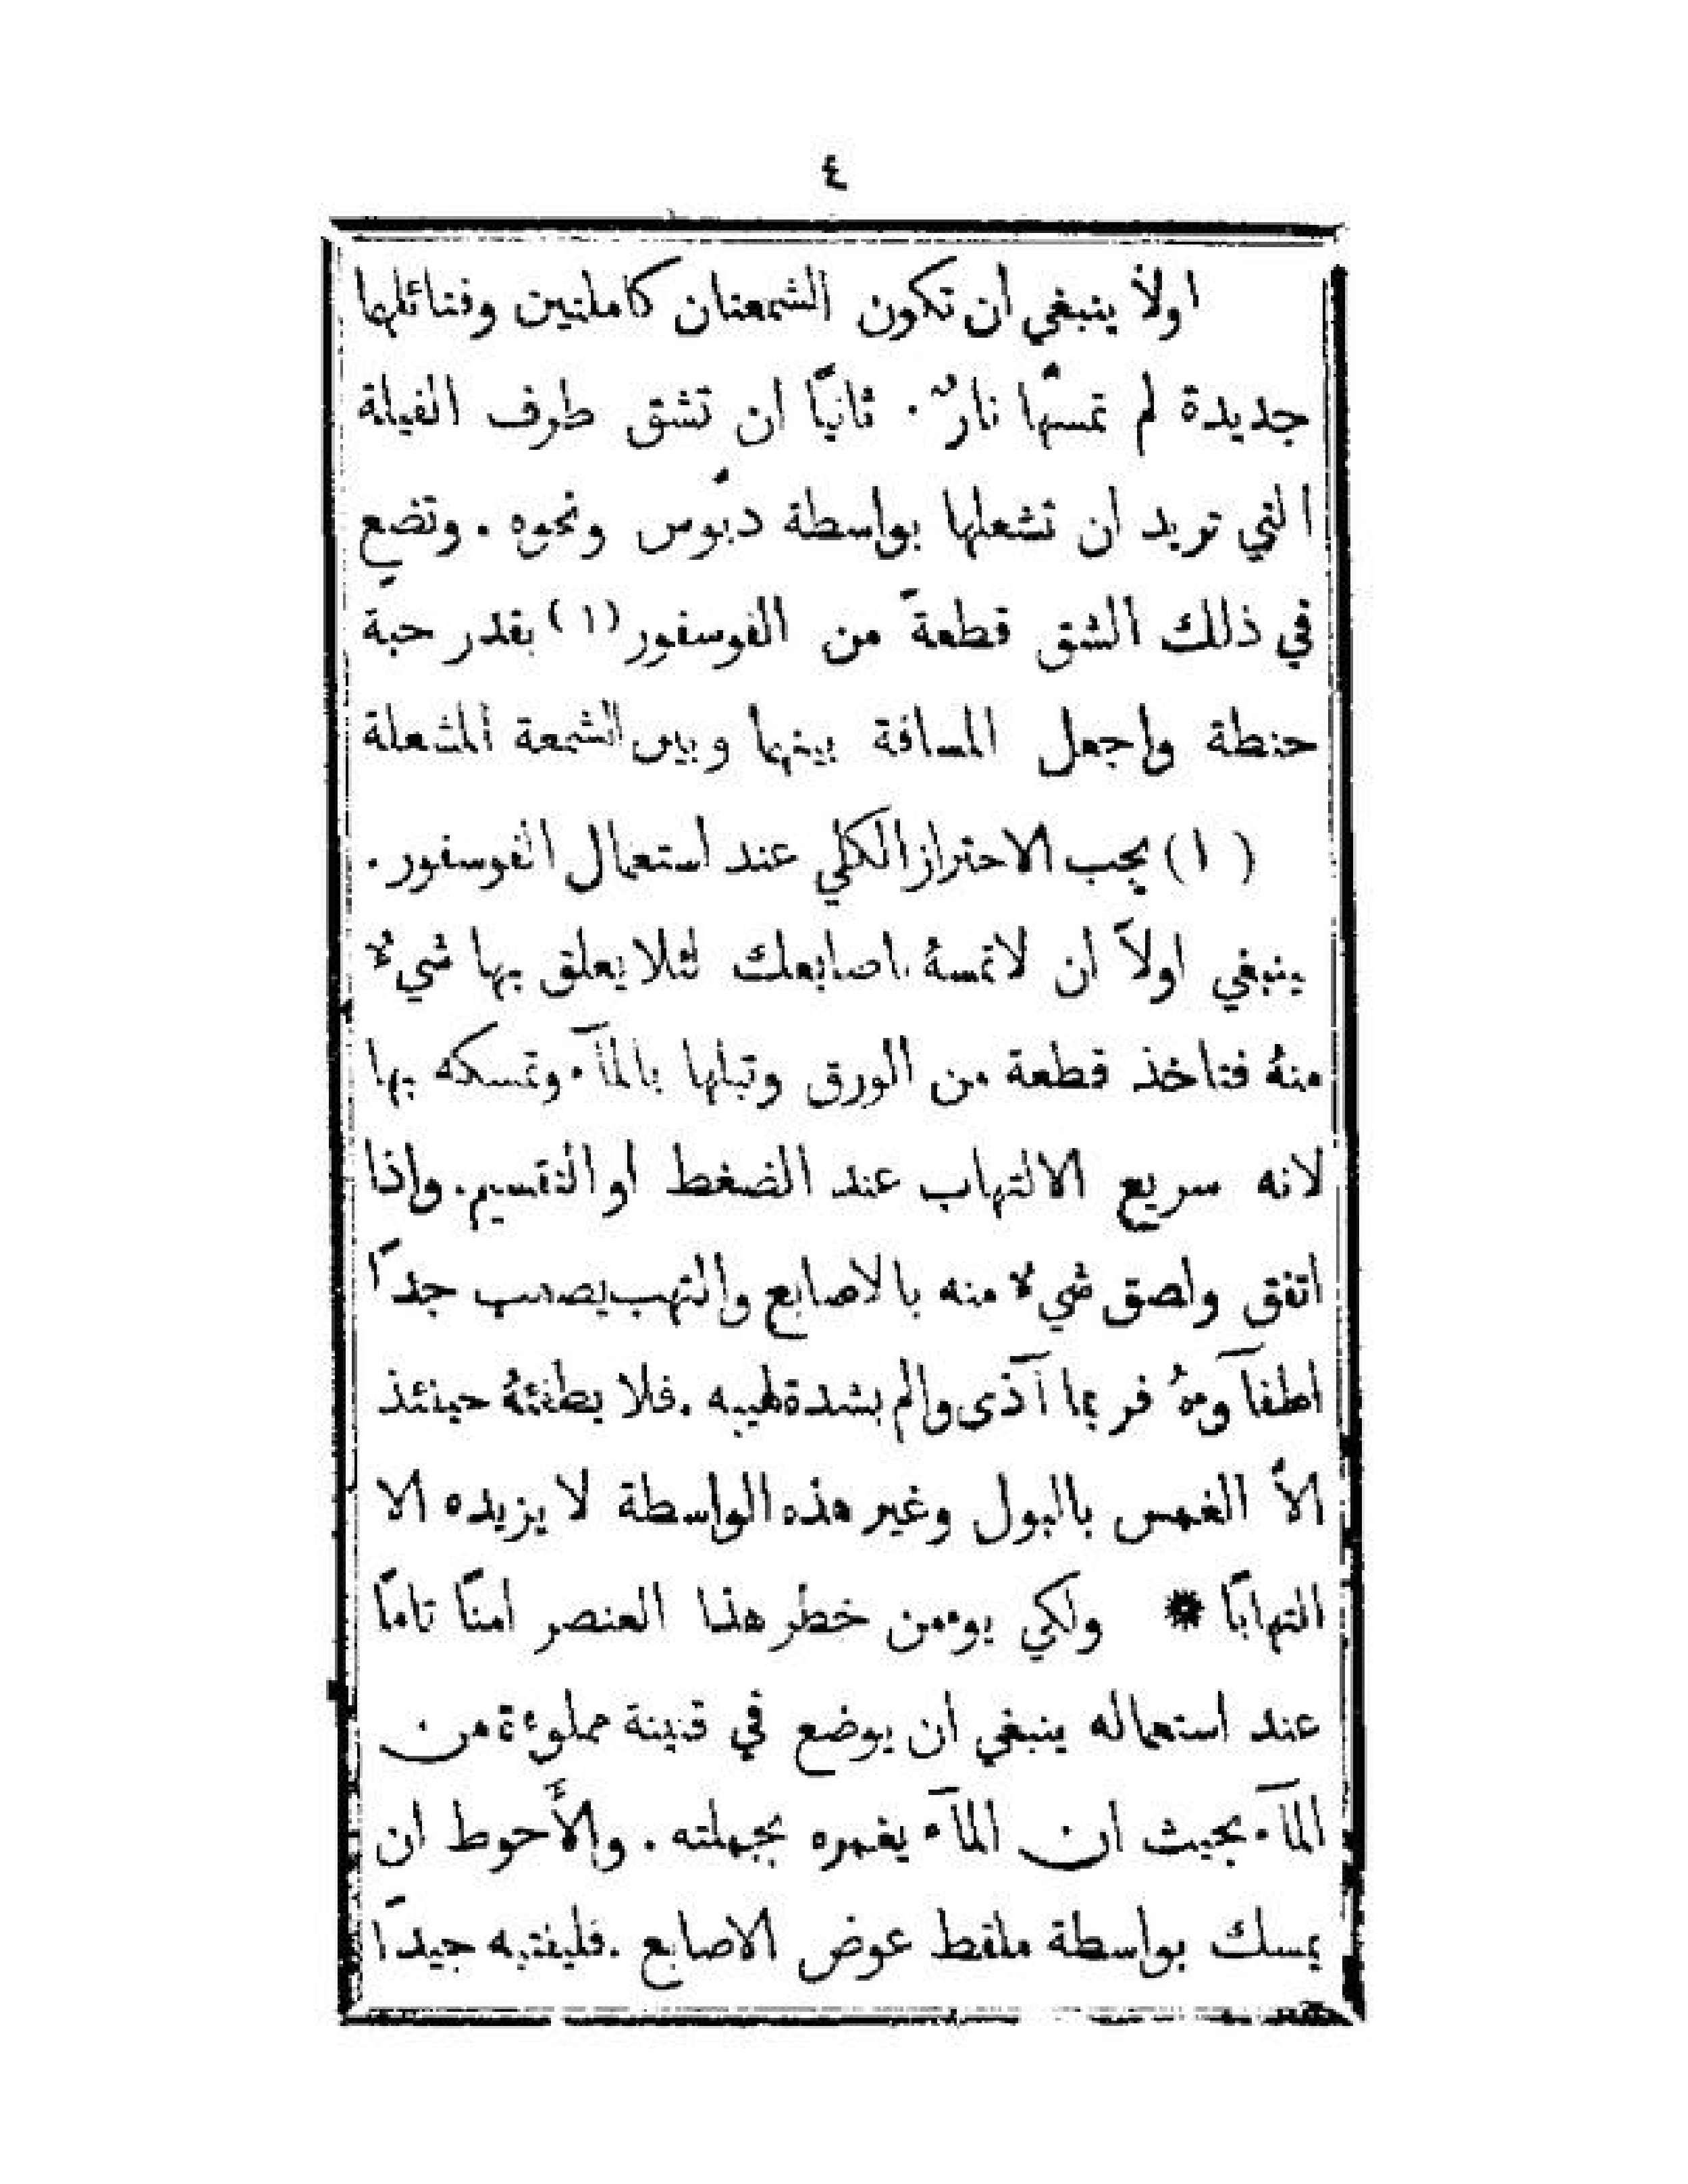 ٤
اولاً ينبغي ان تكون الشمعتان كاملتين وفتائلها
جديدة لم تمسّها نارٌ . ثانيًا ان تشق طرف الفيلة
التي تريد ان تشعلها بواسطة دبّوس ونحوه . وتضع
في ذلك الشق قطعةً من الفوسفور (١) بقدر حبة
حنطة واجعل المسافة بينهما وبين الشمعة المشعلة
(١) يجب الاحتراز الكلي عند استعمال الفوسفور .
ينبغي اولاً ان لاتمسهُ باصابعك لئلا يعلق بها شيءٌ
منهُ فتاخذ قطعة من الورق وتبلها بالمآء وتمسكه بها
لانه سريع الالتهاب عند الضغط او التقسيم . واذا
اتفق ولصق شيءٌ منه بالاصابع والتهب يصعب جدًا
اطفآوهُ فربما آذى والم بشدة لهيبه . فلا يطفئهُ حينئذ
الاَّ الغمس بالبول وغير هذه الواسطة لا يزيده الا
التهابًا * ولكي يومن خطر هذا العنصر امنًا تامًا
عند استعماله ينبغي ان يوضع في قنينة مملوءة من
المآء بحيث ان المآء يغمره بجملته . والأَحوط ان
يمسك بواسطة ملقط عوض الاصابع . فلينتبه جيدًا